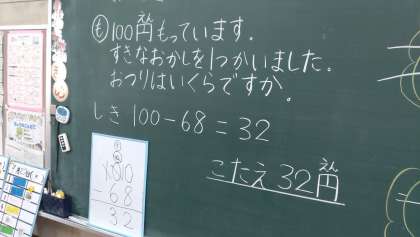 も 100円もっています。
えん
すきなおかしを1つかいました。
おつりはいくらですか。
しき 100-68=32
-68
32
こたえ 32円
えん